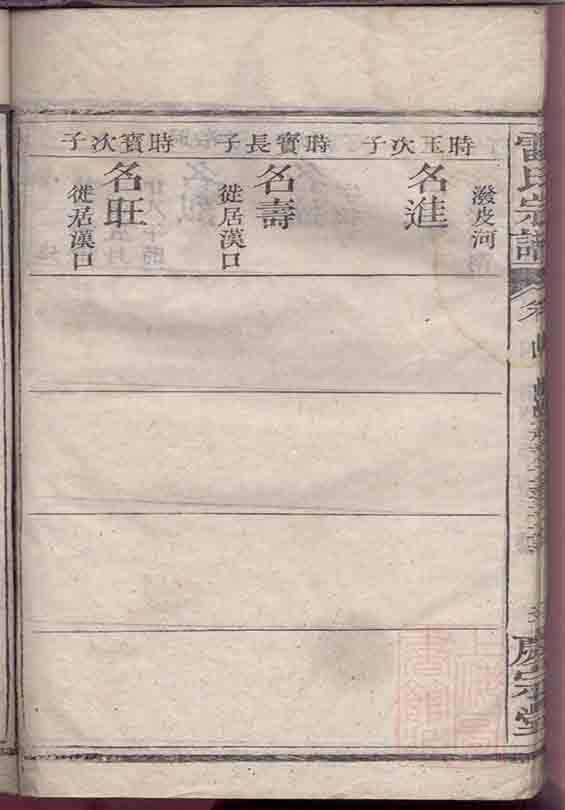 雷氏宗譜
慶宗堂
時玉次子
潑皮河
名進
時寶長子
名壽
徙居漢口
時寶次子
名旺
徙居漢口